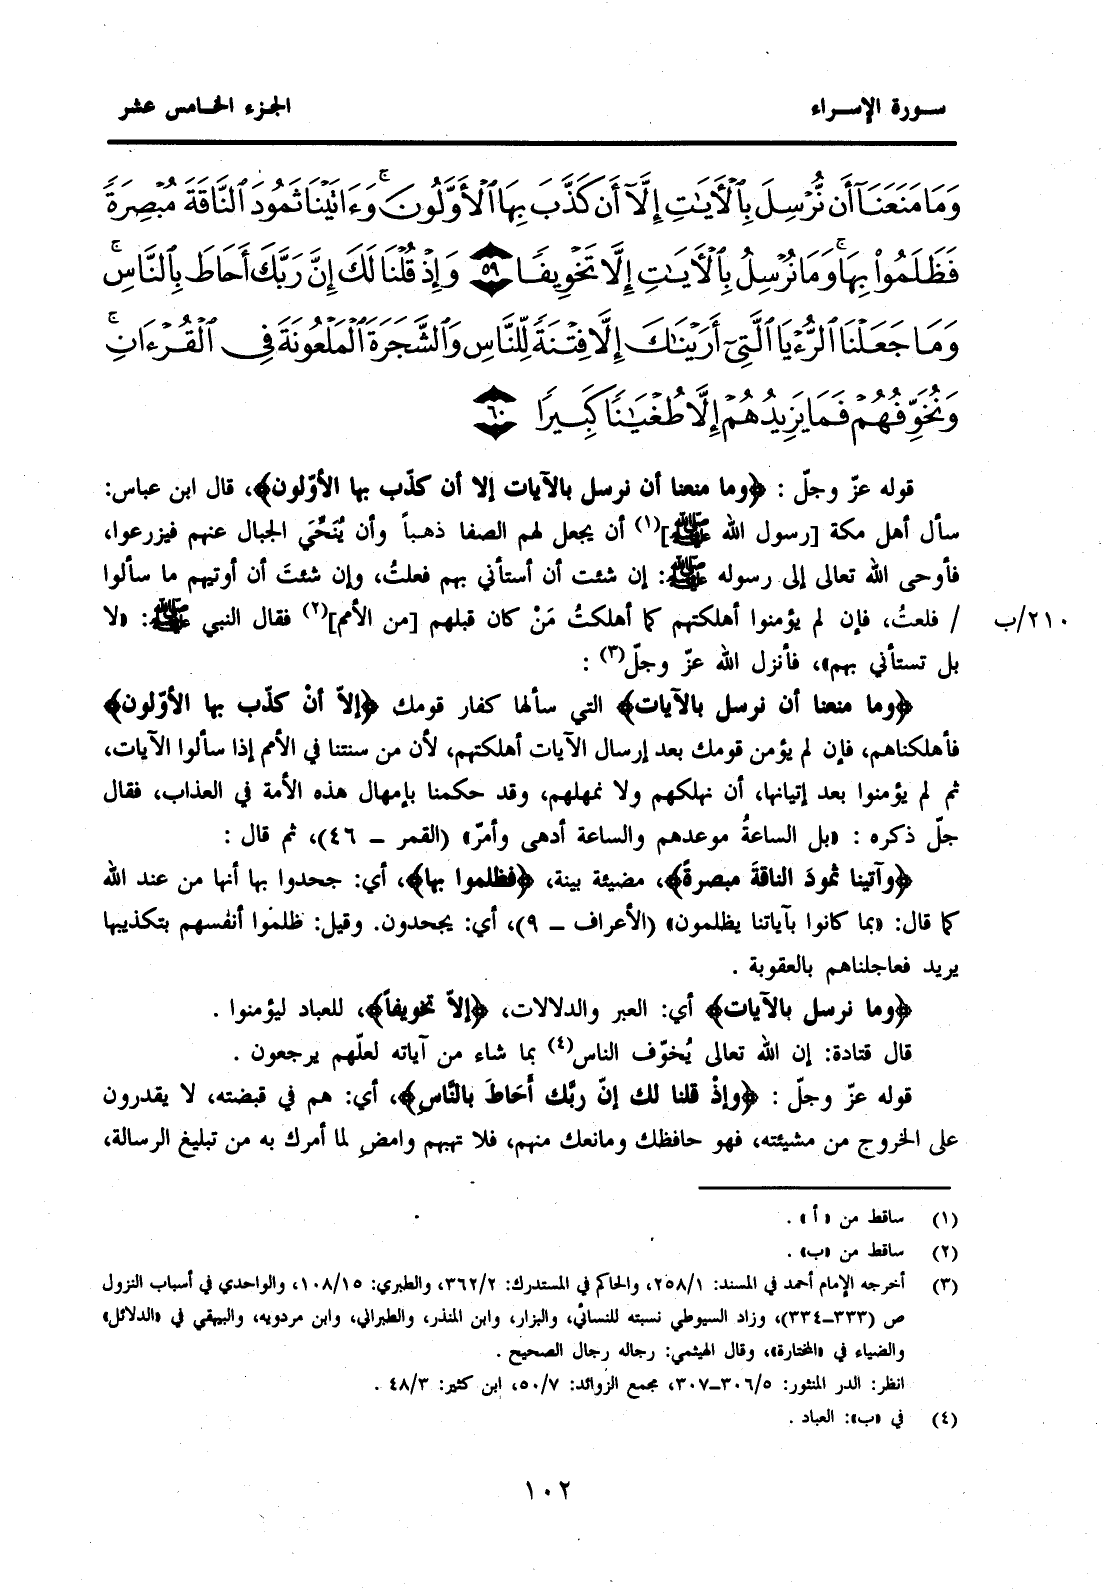 سورة الإسراء
الجزء الخامس عشر
وَمَا مَنَعَنَآ أَن نُّرۡسِلَ بِٱلۡأٓيَٰتِ إِلَّآ أَن كَذَّبَ بِهَا ٱلۡأَوَّلُونَۚ وَءَاتَيۡنَا ثَمُودَ ٱلنَّاقَةَ مُبۡصِرَةٗ
فَظَلَمُواْ بِهَاۚ وَمَا نُرۡسِلُ بِٱلۡأٓيَٰتِ إِلَّا تَخۡوِيفٗا ٥٩ وَإِذۡ قُلۡنَا لَكَ إِنَّ رَبَّكَ أَحَاطَ بِٱلنَّاسِۚ
وَمَا جَعَلۡنَا ٱلرُّءۡيَا ٱلَّتِيٓ أَرَيۡنَٰكَ إِلَّا فِتۡنَةٗ لِّلنَّاسِ وَٱلشَّجَرَةَ ٱلۡمَلۡعُونَةَ فِي ٱلۡقُرۡءَانِۚ
وَنُخَوِّفُهُمۡ فَمَا يَزِيدُهُمۡ إِلَّا طُغۡيَٰنٗا كَبِيرٗا ٦٠
قوله عزّ وجلّ : ﴿وما منعنا أن نرسل بالآيات إلا أن كذّب بها الأوّلون﴾، قال ابن عباس:
سأل أهل مكة [رسول الله ﷺ](١) أن يجعل لهم الصفا ذهباً وأن يُنَحِّيَ الجبال عنهم فيزرعوا،
فأوحى الله تعالى إلى رسوله ﷺ: إن شئت أن أستأني بهم فعلتُ، وإن شئتَ أن أوتيهم ما سألوا
٢١٠/ب / فلعتُ، فإن لم يؤمنوا أهلكتهم كما أهلكتُ مَنْ كان قبلهم [من الأمم](٢) فقال النبي ﷺ: «لا
بل تستأني بهم»، فأنزل الله عزّ وجلّ(٣) :
﴿وما منعنا أن نرسل بالآيات﴾ التي سألها كفار قومك ﴿إلاّ أنْ كذّب بها الأوّلون﴾
فأهلكناهم، فإن لم يؤمن قومك بعد إرسال الآيات أهلكتهم، لأن من سنتنا في الأمم إذا سألوا الآيات،
ثم لم يؤمنوا بعد إتيانها، أن نهلكهم ولا نمهلهم، وقد حكمنا بإمهال هذه الأمة في العذاب، فقال
جلّ ذكره : «بل الساعةُ موعدهم والساعة أدهى وأمرّ» (القمر ــ ٤٦)، ثم قال :
﴿وآتينا ثمودَ الناقةَ مبصرةً﴾، مضيئة بينة، ﴿فظلموا بها﴾، أي: جحدوا بها أنها من عند الله
كما قال: «بما كانوا بآياتنا يظلمون» (الأعراف ــ ٩)، أي: يجحدون. وقيل: ظلموا أنفسهم بتكذيبها
يريد فعاجلناهم بالعقوبة .
﴿وما نرسل بالآيات﴾ أي: العبر والدلالات، ﴿إلاّ تخويفاً﴾، للعباد ليؤمنوا .
قال قتادة: إن الله تعالى يُخوّف الناس(٤) بما شاء من آياته لعلّهم يرجعون .
قوله عزّ وجلّ : ﴿وإذْ قلنا لك إنّ ربَّك أَحَاطَ بالنَّاسِ﴾، أي: هم في قبضته، لا يقدرون
على الخروج من مشيئته، فهو حافظك ومانعك منهم، فلا تهبهم وامضِ لما أمرك به من تبليغ الرسالة،
(١) ساقط من «أ» .
(٢) ساقط من «ب» .
(٣) أخرجه الإمام أحمد في المسند: ٢٥٨/١، والحاكم في المستدرك: ٣٦٢/٢، والطبري: ١٠٨/١٥، والواحدي في أسباب النزول
ص (٣٣٣ــ٣٣٤)، وزاد السيوطي نسبته للنسائي، والبزار، وابن المنذر، والطبراني، وابن مردويه، والبيهقي في «الدلائل»
والضياء في «المختارة»، وقال الهيثمي: رجاله رجال الصحيح .
انظر: الدر المنثور: ٣٠٦/٥ــ٣٠٧، مجمع الزوائد: ٥٠/٧، ابن كثير: ٤٨/٣ .
(٤) في «ب»: العباد .
١٠٢